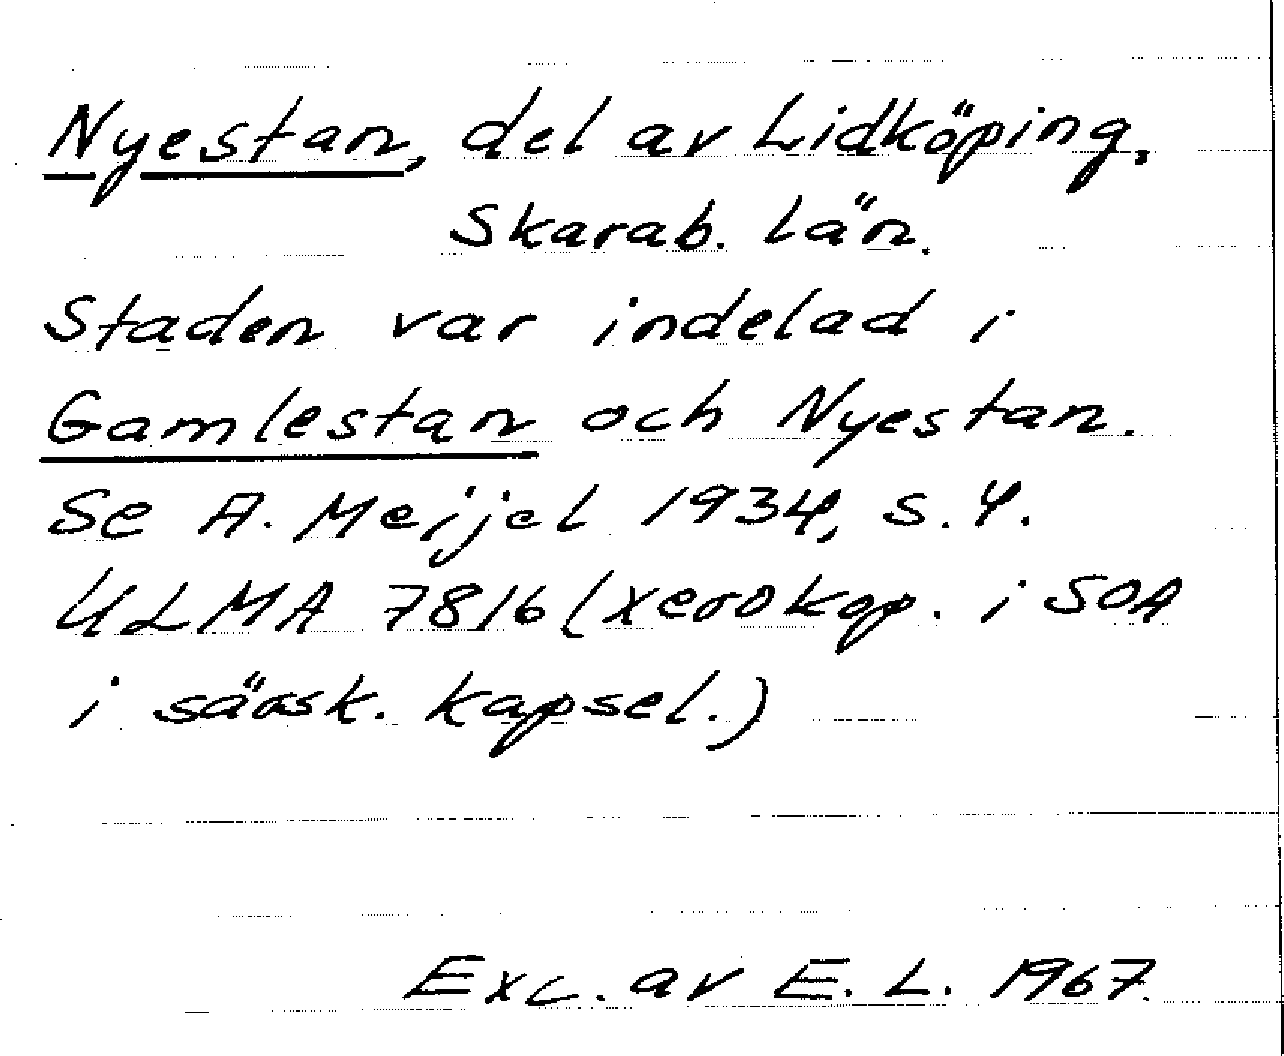 Nyestan, del av Lidköping,
Skarab. län.
Staden var indelad i
Gamlestan och Nyestan.
Se A. Meijel 1934, s. 4.
ULMA 7816 (xerokop. i SOA
i särsk. kapsel.)
Exc. av E. L. 1967.